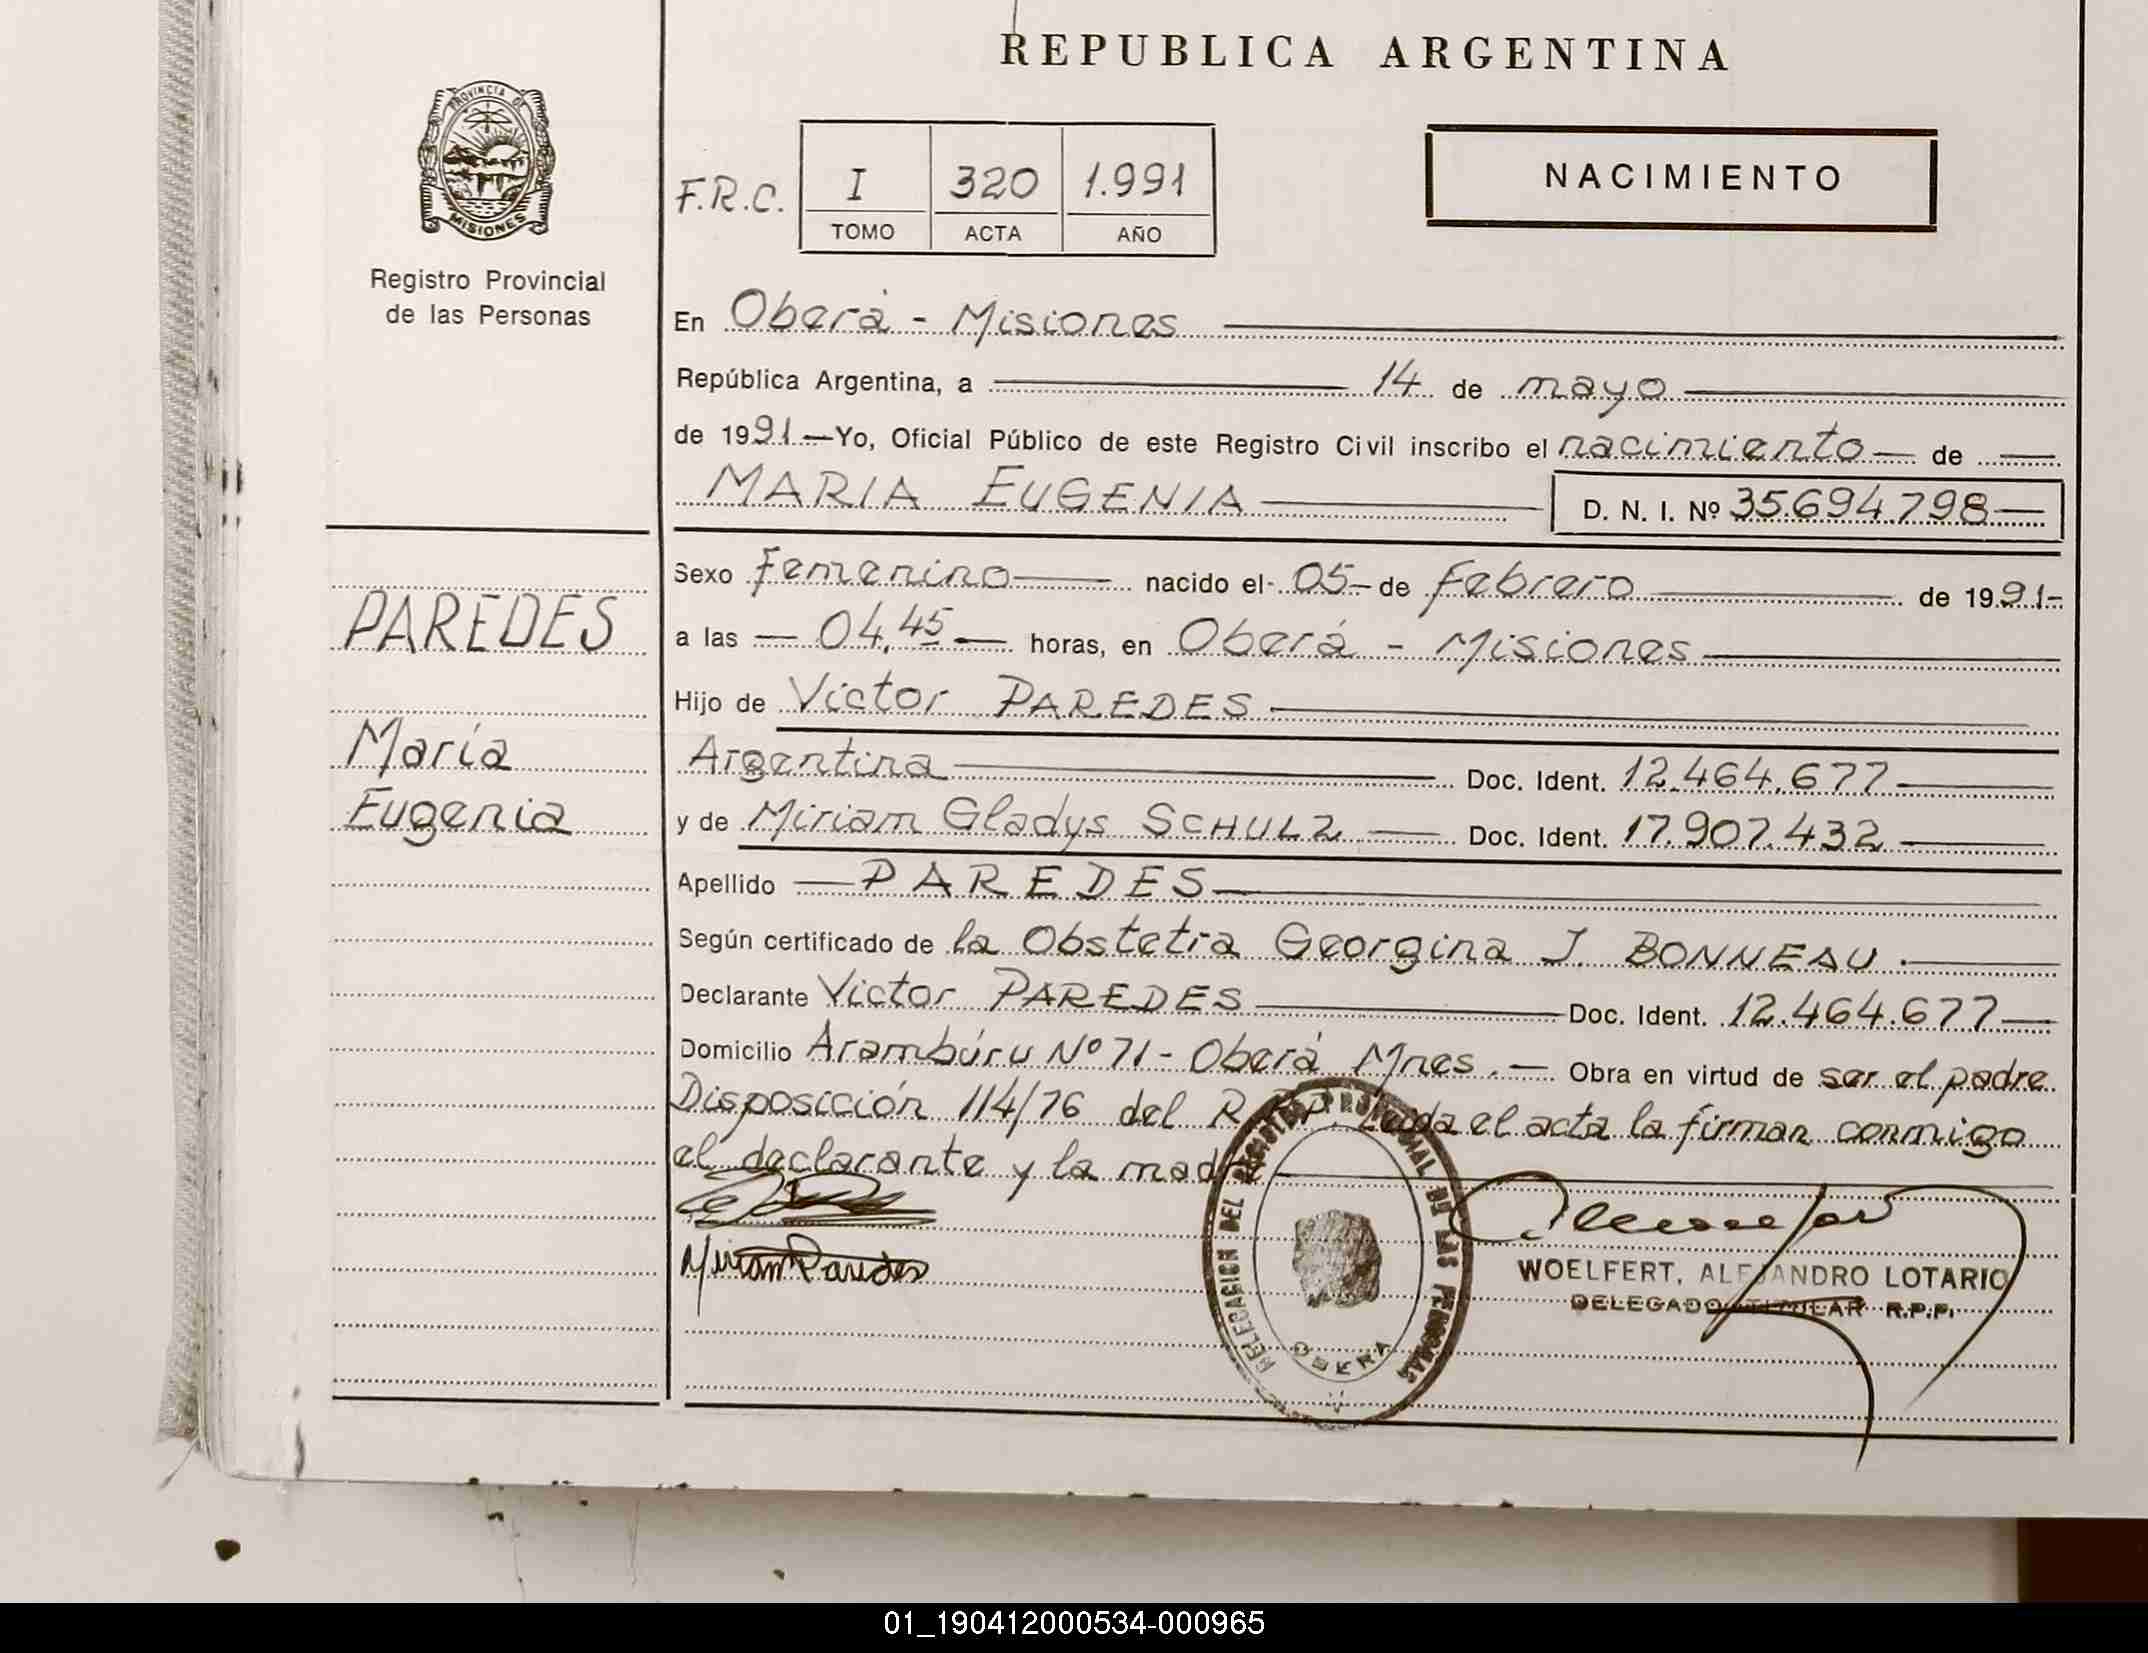 REPUBLICA ARGENTINA
PROVINCIA DE
MISIONES
Registro Provincial
de las Personas
F.R.C.
I 320 1.991
TOMO ACTA AÑO
NACIMIENTO
En Oberá - Misiones
República Argentina, a 14 de mayo
de 1991 Yo, Oficial Público de este Registro Civil inscribo el nacimiento de
MARIA EUGENIA D. N. I. Nº 35.694.798
Sexo Femenino nacido el 05 de febrero de 1991
a las 04,45 horas, en Oberá - Misiones
Hijo de Victor PAREDES
Argentina Doc. Ident. 12.464.677
y de Miriam Gladys SCHULZ Doc. Ident. 17.907.432
Apellido PAREDES
Según certificado de la Obstetra Georgina J. BONNEAU.
Declarante Victor PAREDES Doc. Ident. 12.464.677
Domicilio Arambúru Nº 71 - Oberá Mnes. Obra en virtud de ser el padre
Disposición 114/76 del R.P.P. Leída el acta la firman conmigo
el declarante y la madre
PAREDES
María
Eugenia
Miriam Paredes
DELEGACION DEL REGISTRO PROVINCIAL DE LAS PERSONAS
OBERA
WOELFERT, ALEJANDRO LOTARIO
DELEGADO TITULAR R.P.P.
01_190412000534-000965